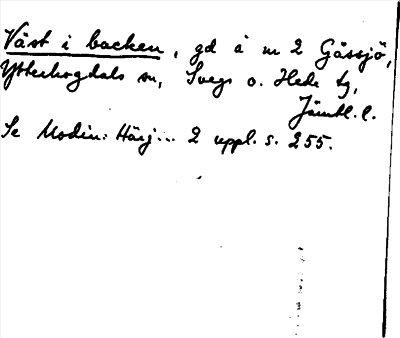 Väst i backen, gd å nr 2 Gåssjö,
Ytterhogdals sn, Svegs o. Hede tg,
Jämtl. l.
Se Modin: Härj... 2 uppl. s. 255.